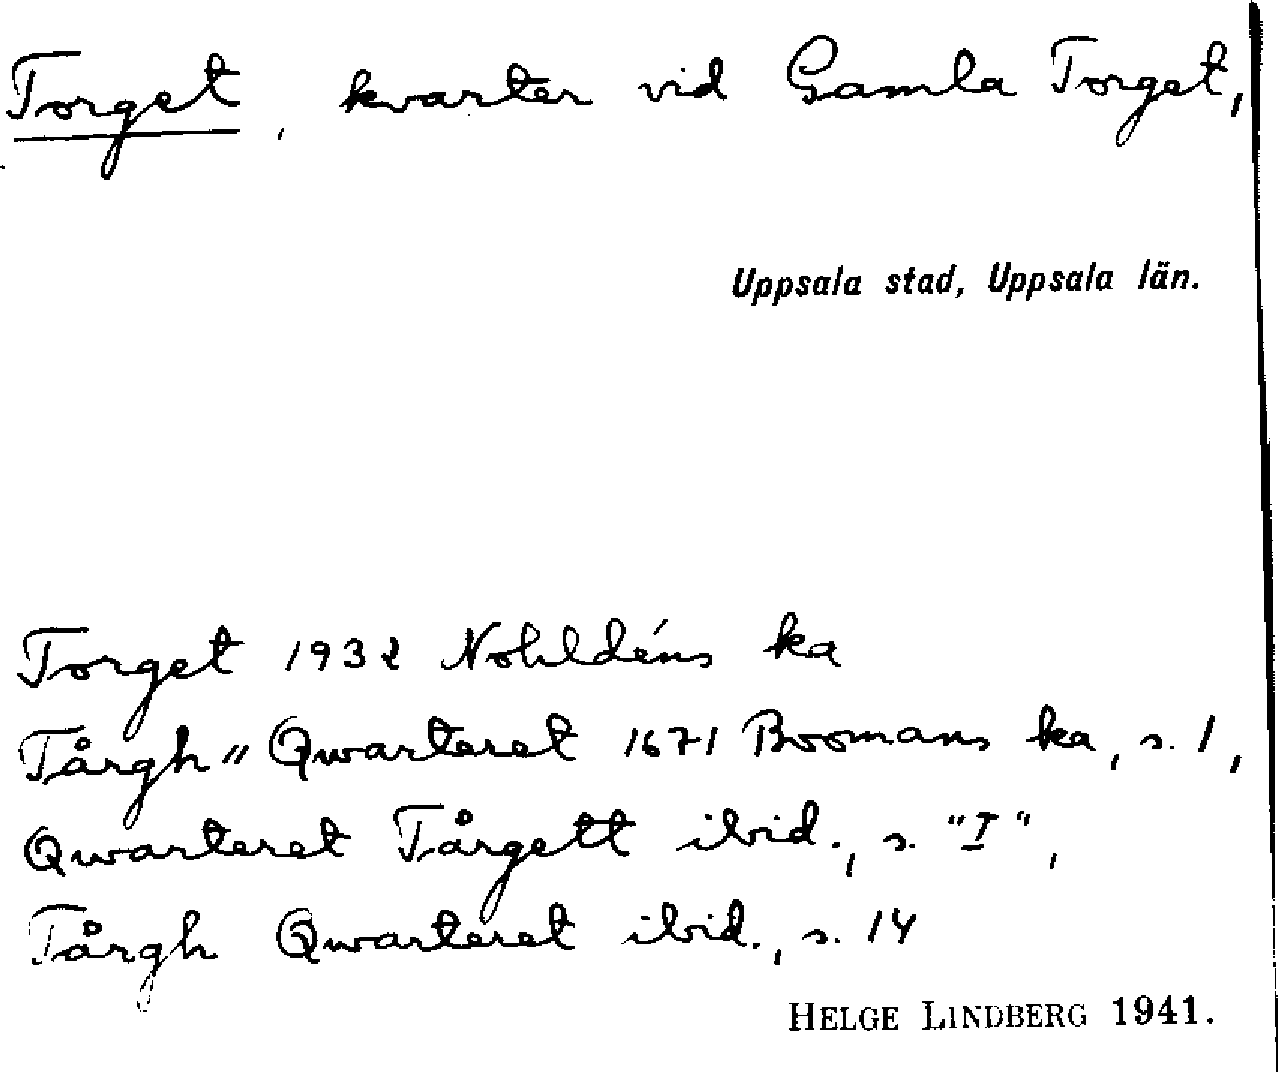 Torget, kvarter vid Gamla Torget,
Uppsala stad, Uppsala län.
Torget 1932 Nohldéns ka
Tårgh" Qwarteret 1671 Boomans ka, s. 1,
Qwarteret Tårgett ibid., s. "I",
Tårgh Qwarteret ibid., s. 14
HELGE LINDBERG 1941.